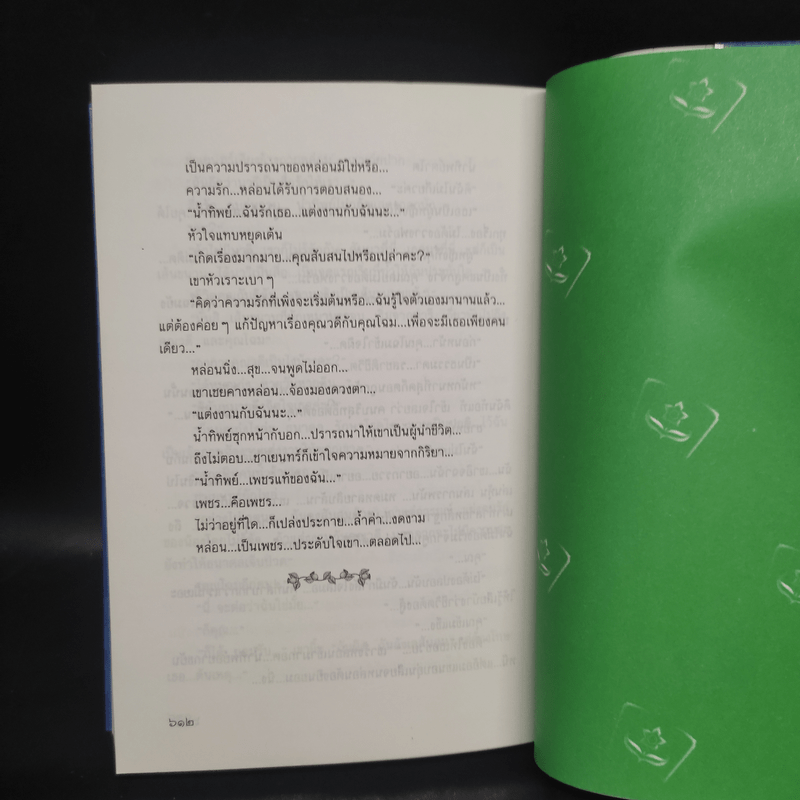 เป็นความปรารถนาของหล่อนมิใช่หรือ...
ความรัก...หล่อนได้รับการตอบสนอง...
“น้ำทิพย์...ฉันรักเธอ...แต่งงานกับฉันนะ...”
หัวใจแทบหยุดเต้น
“เกิดเรื่องมากมาย...คุณสับสนไปหรือเปล่าคะ?”
เขาหัวเราะเบา ๆ
“คิดว่าความรักที่เพิ่งจะเริ่มต้นหรือ...ฉันรู้ใจตัวเองมานานแล้ว...
แต่ต้องค่อย ๆ แก้ปัญหาเรื่องคุณวดีกับคุณโฉม...เพื่อจะมีเธอเพียงคน
เดียว...”
หล่อนนิ่ง...สุข...จนพูดไม่ออก...
เขาเชยคางหล่อน...จ้องมองดวงตา...
“แต่งงานกับฉันนะ...”
น้ำทิพย์ซุกหน้ากับอก...ปรารถนาให้เขาเป็นผู้นำชีวิต...
ถึงไม่ตอบ...ชาเยนทร์ก็เข้าใจความหมายจากกิริยา...
“น้ำทิพย์...เพชรแท้ของฉัน...”
เพชร...คือเพชร...
ไม่ว่าอยู่ที่ใด...ก็เปล่งประกาย...ล้ำค่า...งดงาม
หล่อน...เป็นเพชร...ประดับใจเขา...ตลอดไป...
๖๑๒